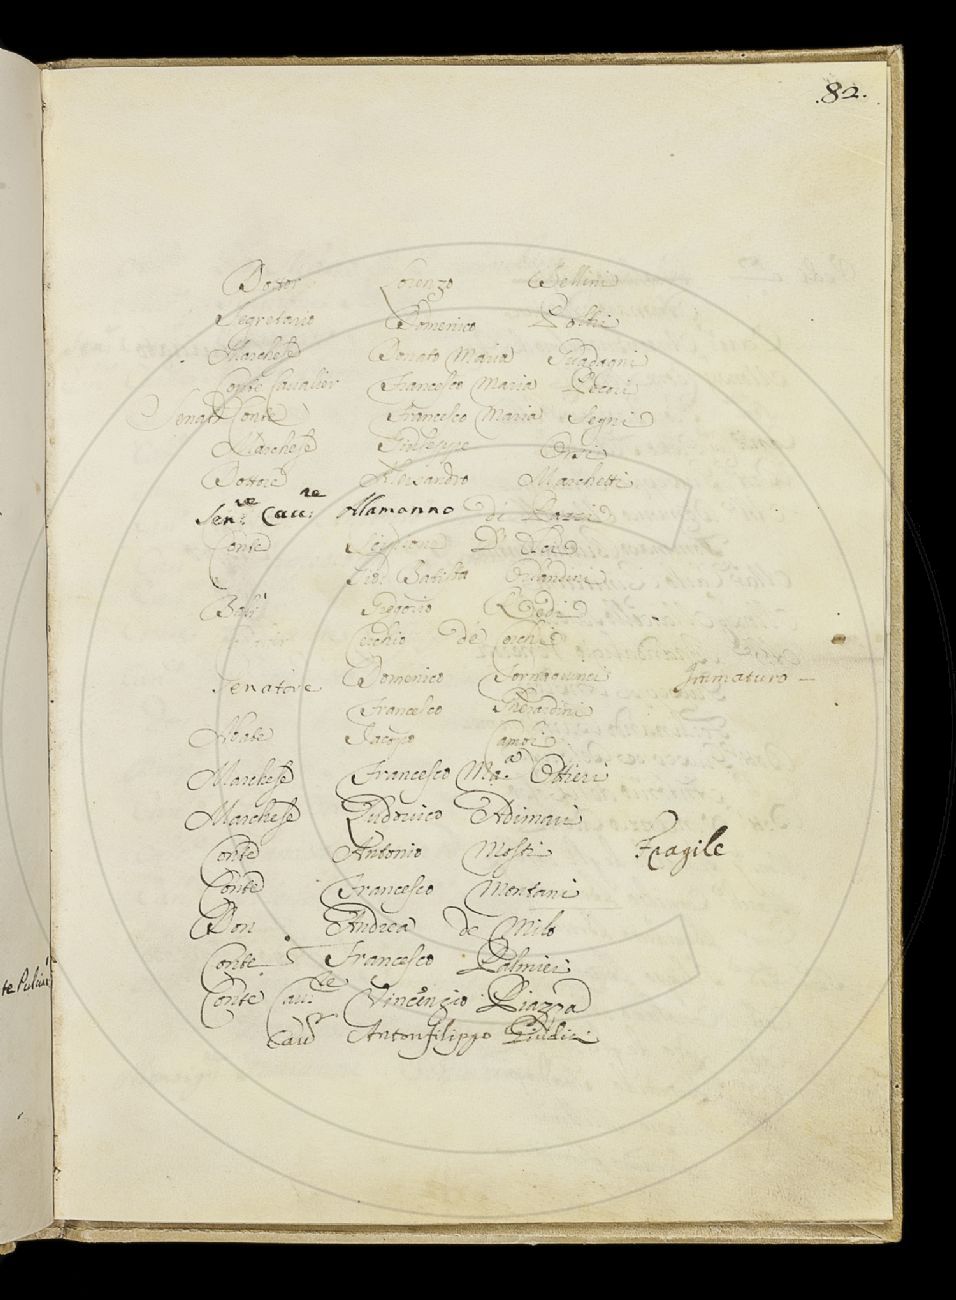 .82.
Dottor Lorenzo Bellini
Segretario Domenico Poltri
Marchese Donato Maria Guadagni
Conte Cavalier Francesco Maria
Senat: Conte Francesco Maria Segni
Marchese Giuseppe Orsi
Dottore Alessandro Marchetti
Sen:re Cau:re Alamanno di Pazzi
Conte
Gio: Batista Orlandini
Bali Gregorio Redi
Cerchio de Cerchi
Senatore Domenico Fornaciari Immaturo
Francesco Gherardini
Abate Jacopo
Marchese Francesco Ma:a Ottieri
Marchese Ludovico Adimari
Conte Antonio Mosti Fragile
Conte Francesco Montani
Don Andrea de Milo
Conte Francesco Palmieri
Conte Cau:re Vincenzio Piazza
Cau:r Antonfilippo Giudici
te Pulici